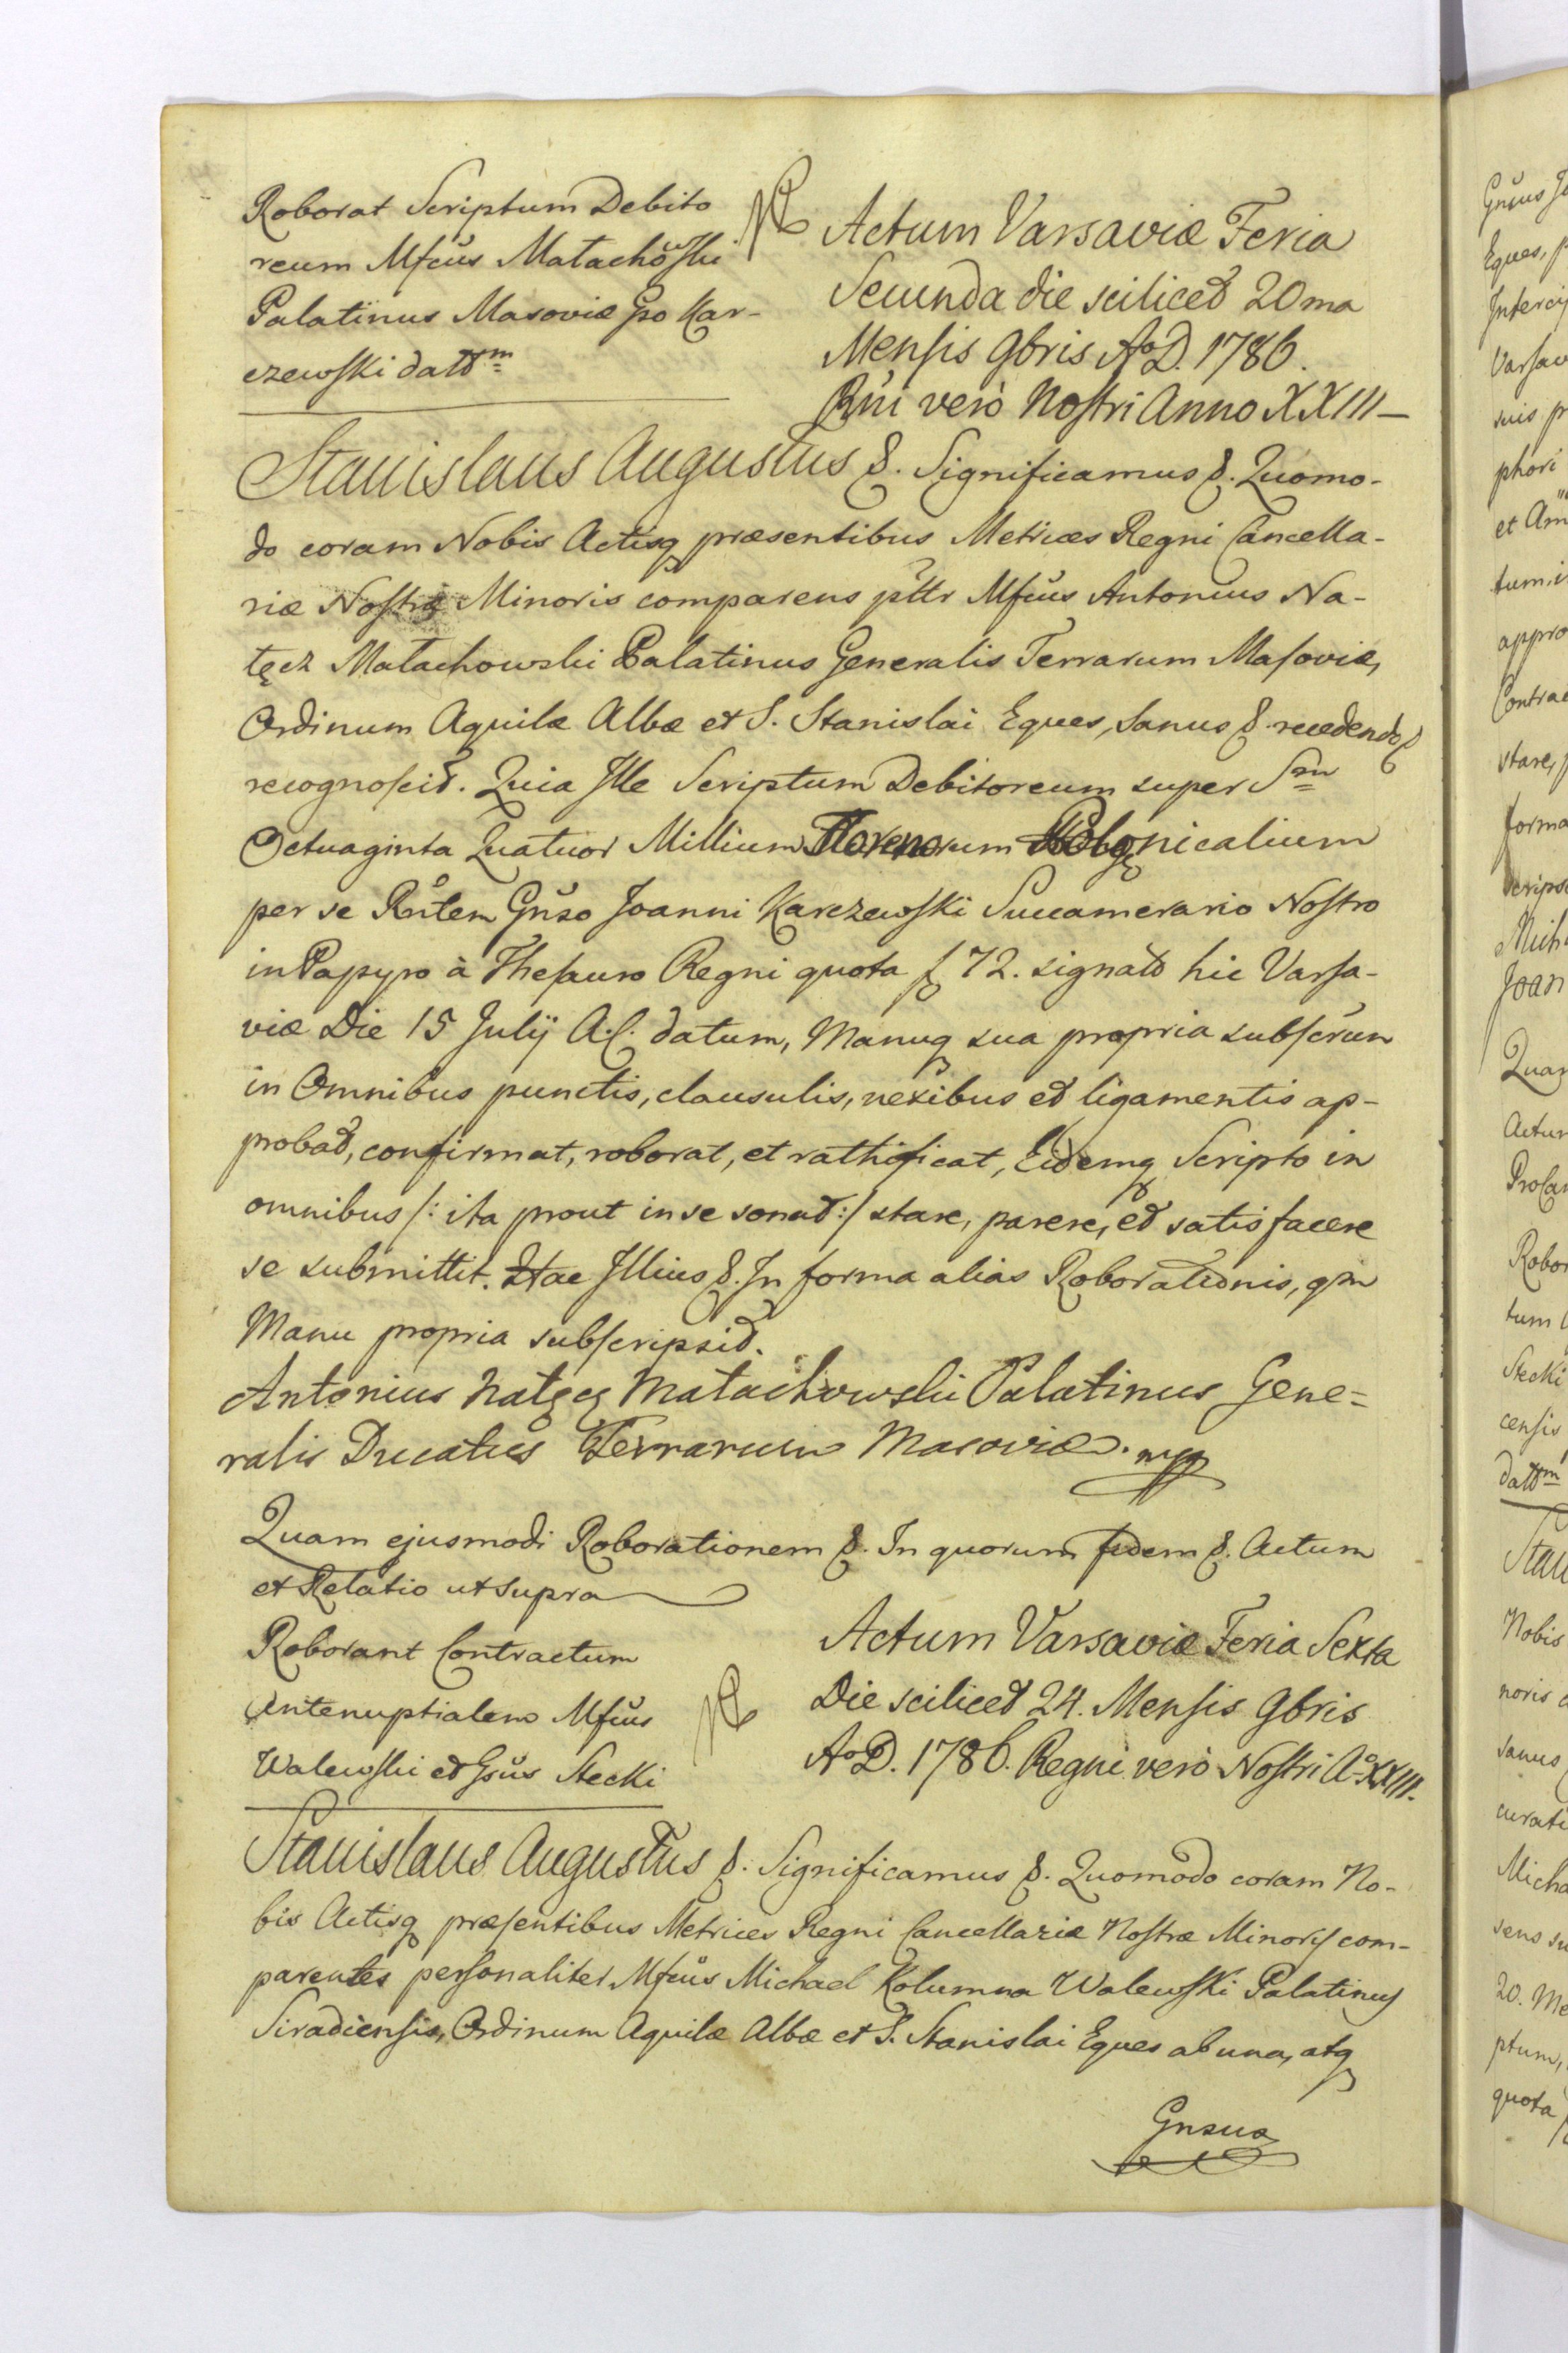 Roborat Scriptum Debito
reum Mfcus Małachowski
Palatinus Masoviæ Gso Kar-
czewski dattm
Actum Varsaviæ Feria
Secunda die scilicet 20ma
Mensis 9bris AoD. 1786.
Rni verò Nostri Anno XXIII
Stanislaus Augustus &. Significamus &. Quomo-
do coram Nobis Actisq præsentibus Metrices Regni Cancella-
riæ Nostræ Minoris comparens pttr Mfcus Antonius Na-
łęcz Małachowski Palatinus Generalis Terrarum Masoviæ,
Ordinum Aquilæ Albæ et S. Stanislai Eques, sanus &. recedendo &
recognoscit. Quia Ille Scriptum Debitoreum super Sm
Octuaginta Quatuor Millium Florenorum Polonicalium
per se Rntem Gnso Joanni Karczewski Succamerario Nostro
in Papyro à Thesauro Regni quota f 72. signato hic Varsa-
viæ Die 15 Julij A.C. datum, Manuq sua propria subscrun
in Omnibus punctis, clausulis, nexibus et ligamentis ap-
probat, confirmat, roborat, et rathificat, Eidemq Scripto in
omnibus /: ita prout in se sonat :/ stare, parere, et satisfacere
se submittit. Hac Illius &. In forma alias Roborationis, qm
Manu propria subscripsit.
Antonius Nałęcz Małachowski Palatinus Gene=
ralis Ducatus Terrarum Masoviæ. mpp
Quam ejusmodi Roborationem &. In quorum fidem &. Actum
et Relatio ut supra
Roborant Contractum
Antenuptialem Mfcus
Walewski et Gsus Stecki
Actum Varsaviæ Feria Sexta
Die scilicet 24. Mensis 9bris
AoD. 1786. Regni verò Nostri Ao XXIII.
Stanislaus Augustus &. Significamus &. Quomodo coram No-
bis Actisq præsentibus Metrices Regni Cancellariæ Nostræ Minoris com-
parentes personaliter Mfcus Michael Kolumna Walewski Palatinus
Siradiensis, Ordinum Aquilæ Albæ et S. Stanislai Eques ab una, atq
Gnsus